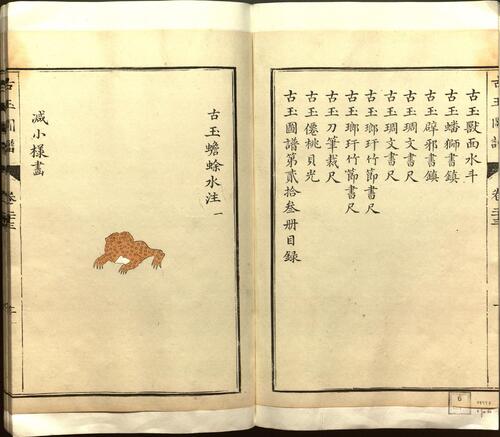 古玉獸面水斗
古玉蟠獅書鎮
古玉辟邪書鎮
古玉琱文書尺
古玉琱文書尺
古玉瑯玕竹節書尺
古玉瑯玕竹節書尺
古玉刀筆裁尺
古玉僊桃貝光
古玉圖譜第貳拾叁册目錄
古玉蟾蜍水注 一
減小樣畫
古玉圖譜
卷二十三
6